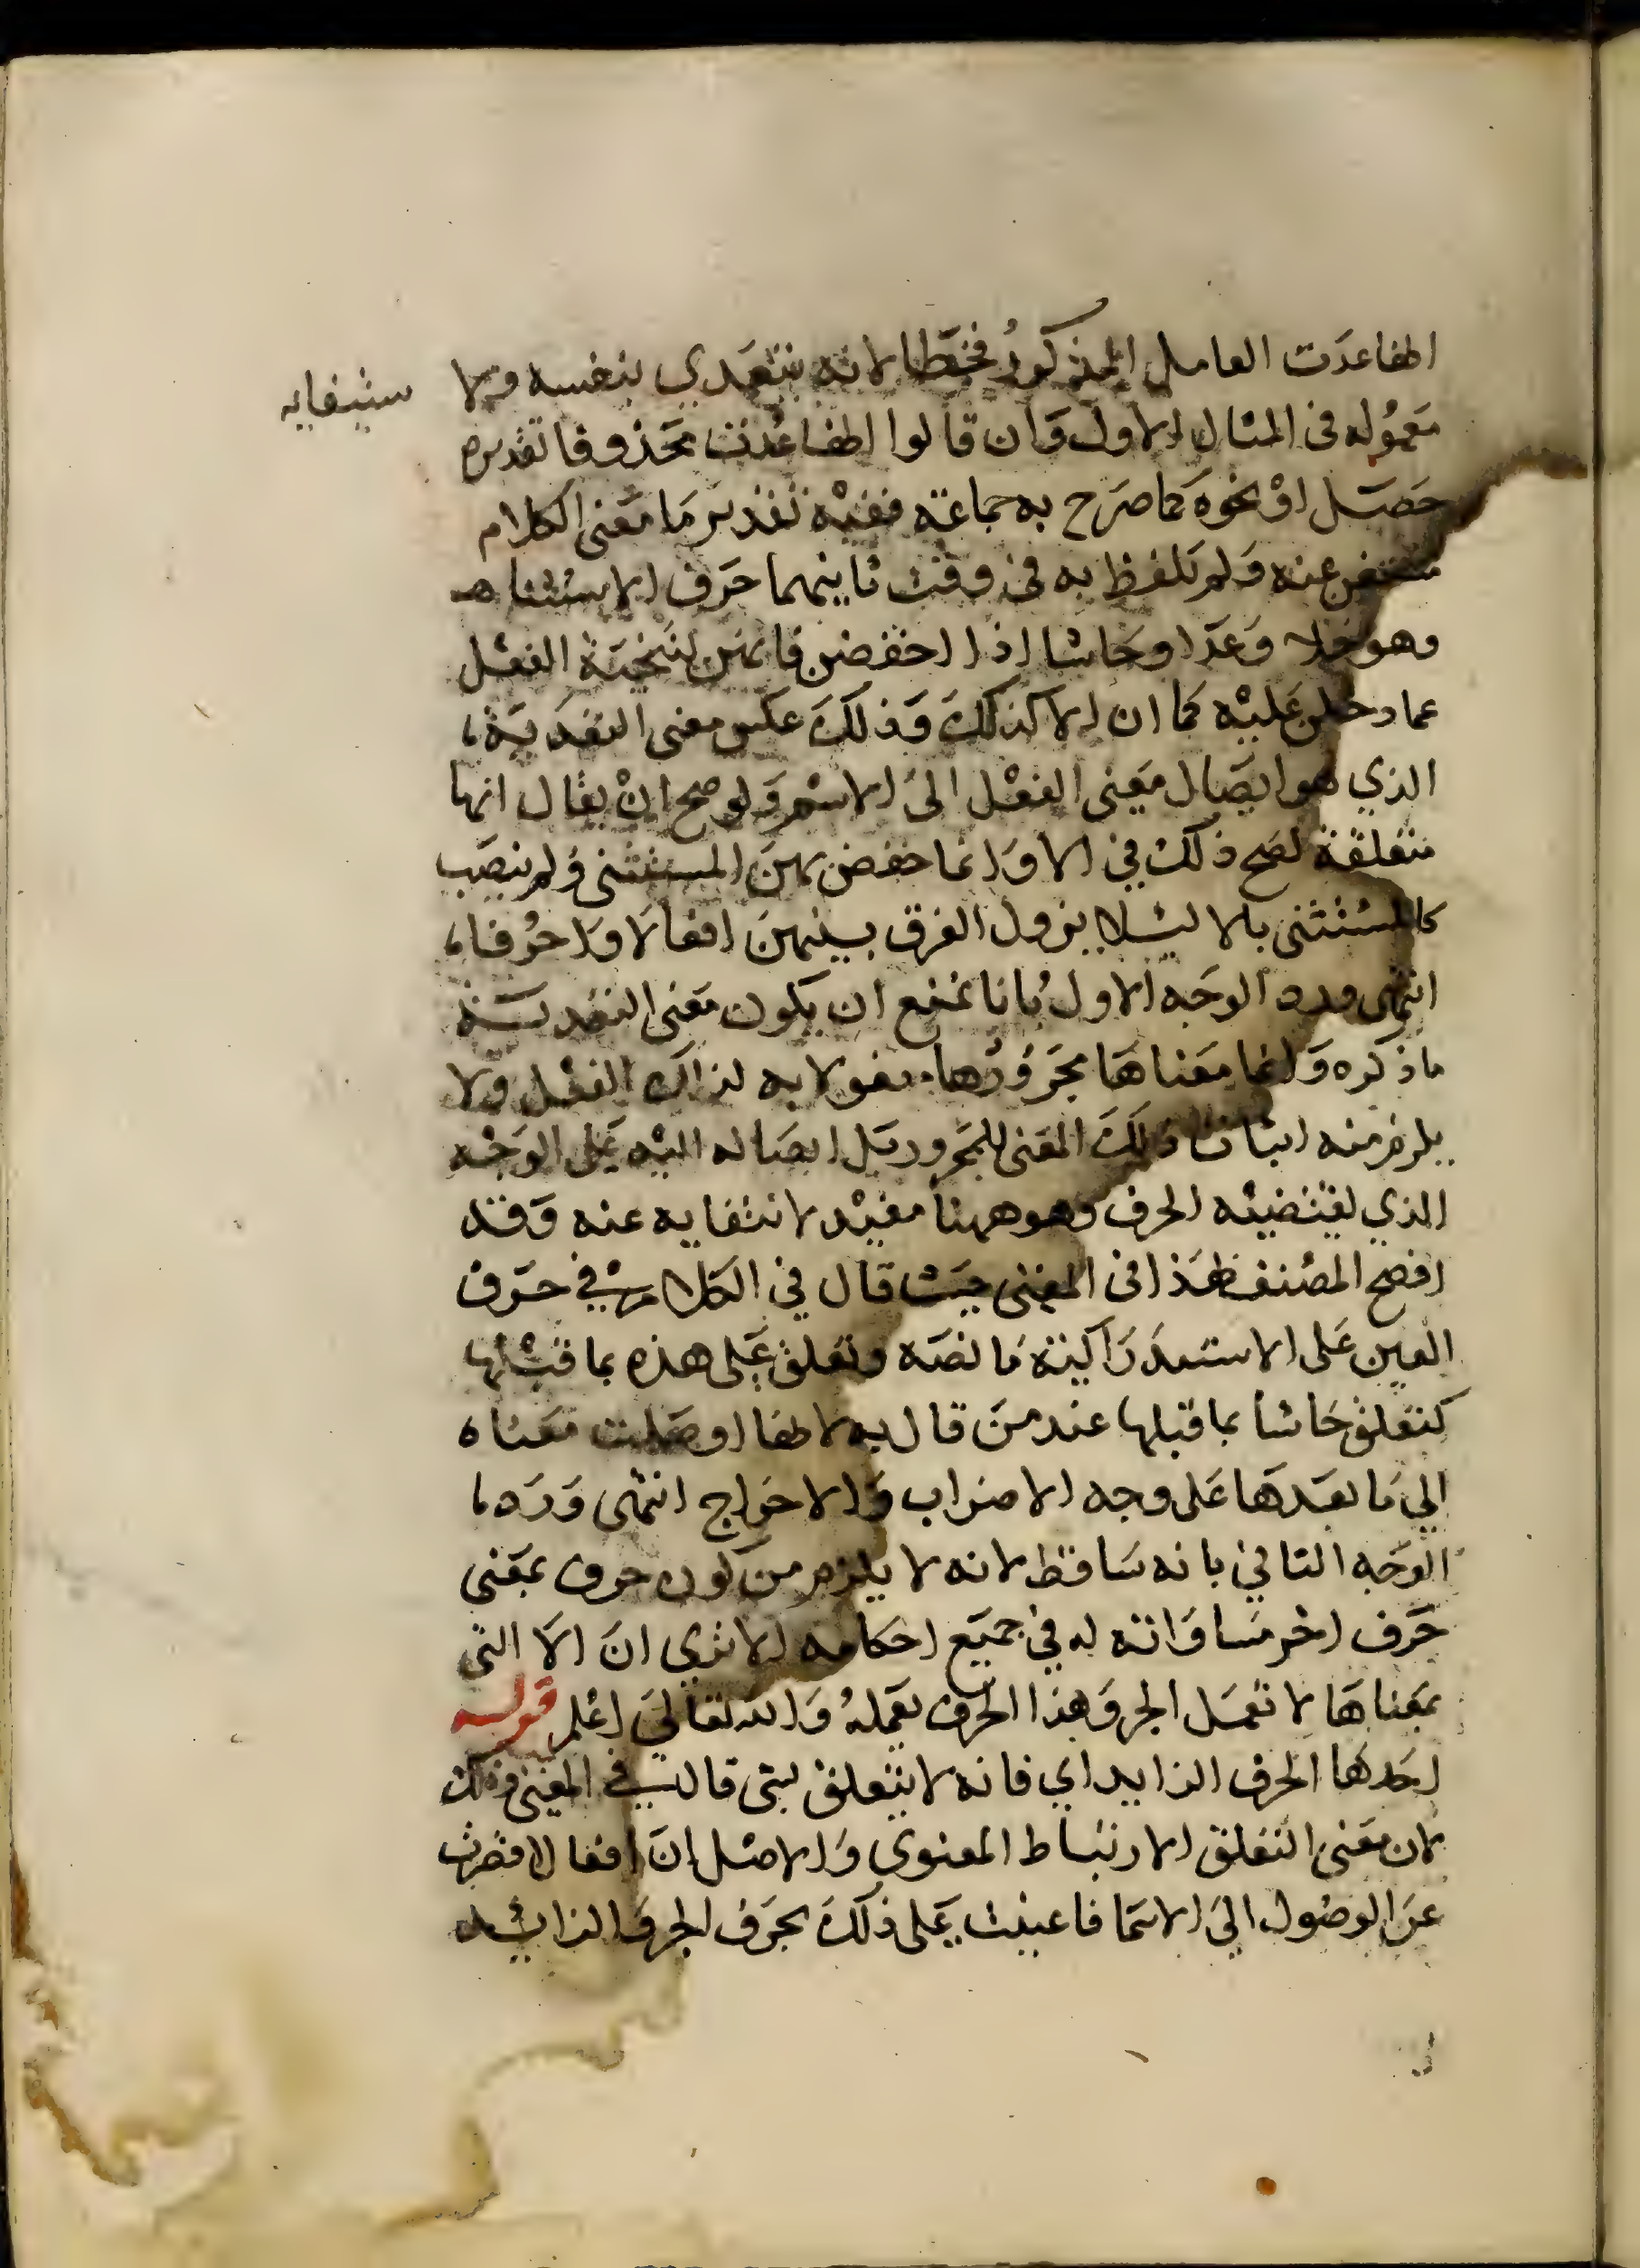 انها عدت العامل المذكور فخطا لانه يتعدي بنفسه ولا ستيفايه
معموله فى المثال الاول وان قالوا انها عدت محذوفا تقديره
حصل او نحوه كما صرح به جماعة ففيه تقدير ما معنى الكلام
مستغن عنه ولم يلفظ به فى وقت ثانيهما حرف الاستثنا
وهو خلا وعدا وحاشا اذا خفضن فانهن لتنحية الفعل
عما دخلن عليه كما ان الا كذلك وذلك عكس معنى التعدية
الذي هو ايصال معنى الفعل الى الاسم ولو صح ان يقال انها
متعلقة لصح ذلك في الا وانما خفض بهن المستثنى ولم ينصب
كالمستثنى بالا ليلا يزول الفرق بينهن افعالا واحرفا
انتهى ورد الوجه الاول بانا نمنع ان يكون معنى التعدية
ما ذكره وانما معناها مجرورها مفعولا به لذلك الفعل ولا
يلزم منه اثبات ذلك المعنى للمجرور بل ايصاله اليه على الوجه
الذي يقتضيه الحرف وهو ههنا مفيد لانتفايه عنه وقد
افصح المصنف بهذا فى المغنى حيث قال في الكلام في حرف
العين على الاستدراكية ما نصه وتعلق على هذه بما قبلها
كتعلق حاشا بما قبلها عند من قال به لانها اوصلت معناه
الي ما بعدها على وجه الاضراب والاخراج انتهى ورد
الوجه الثاني بانه ساقط لانه لا يلزم من كون حرف بمعنى
حرف اخر مساواته له في جميع احكامه الا تري ان الا التى
بمعناها لا تعمل الجر وهذا الحرف يعمله والله تعالى اعلم قوله
احدها الحرف الزايد اي فانه لا يتعلق بشي قال في المغنى وذلك
لان معنى التعلق الارتباط المعنوي والاصل ان افعالا قصرت
عن الوصول الى الاسما فاعينت على ذلك بحرف الجر والزائد